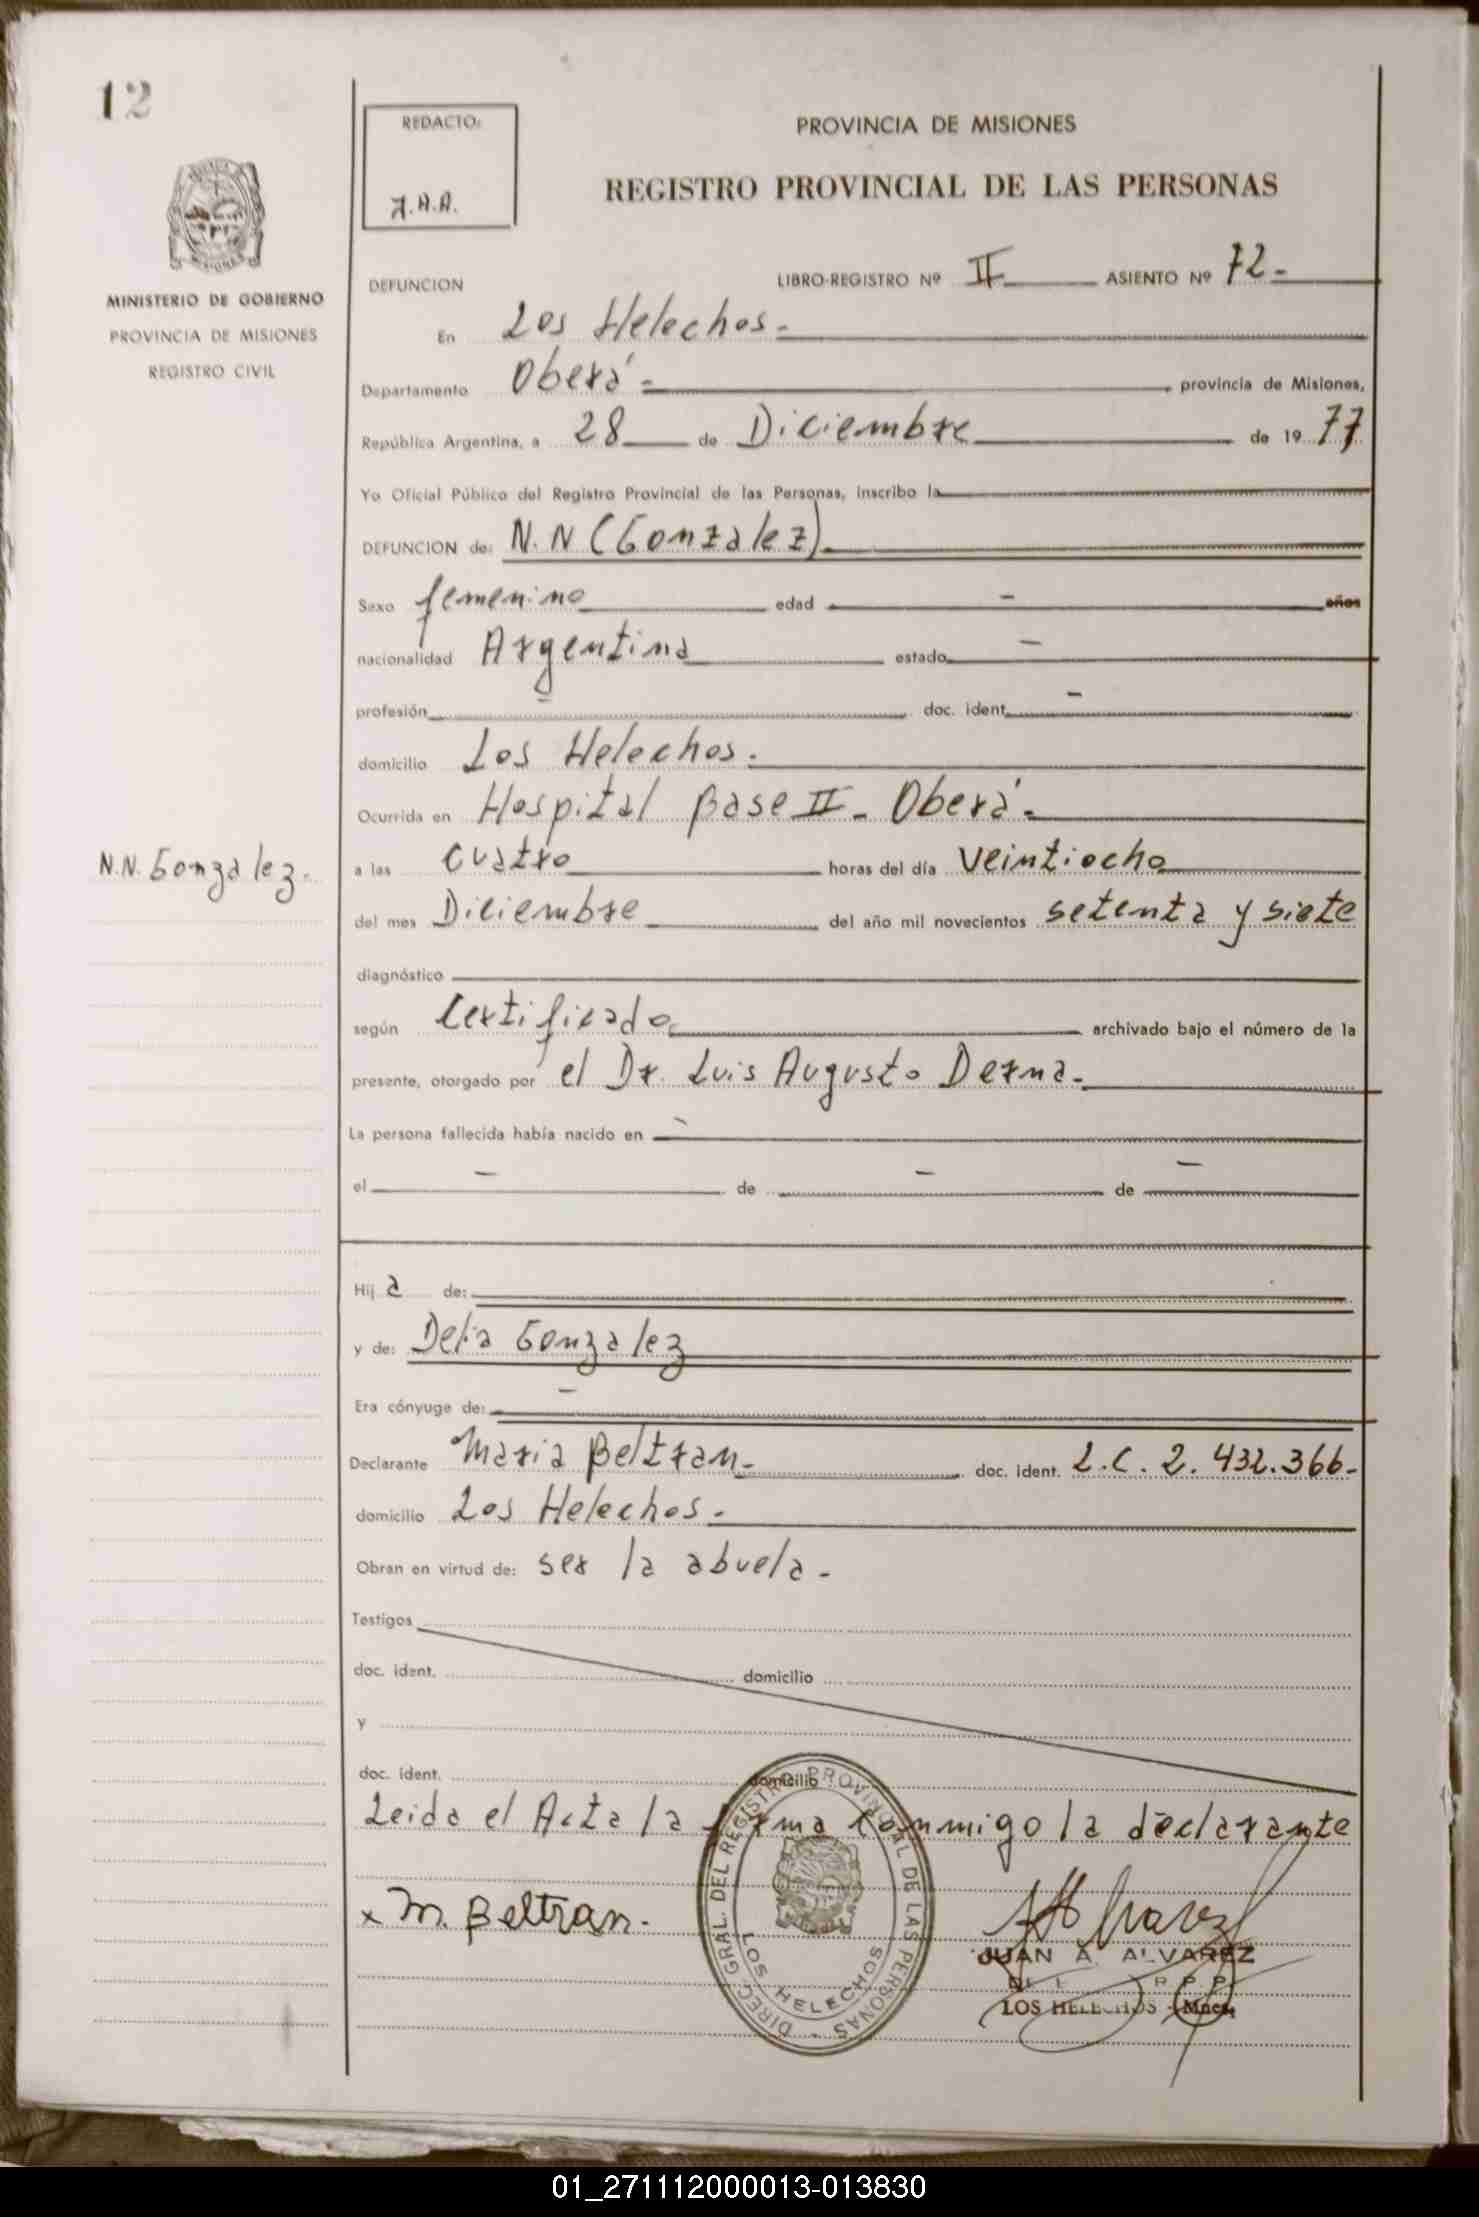 12
REDACTO:
J.A.A.
PROVINCIA DE MISIONES
REGISTRO PROVINCIAL DE LAS PERSONAS
MINISTERIO DE GOBIERNO
PROVINCIA DE MISIONES
REGISTRO CIVIL
DEFUNCION LIBRO-REGISTRO Nº II ASIENTO Nº 72.-
En Los Helechos.-
Departamento Oberá.- provincia de Misiones,
República Argentina, a 28 de Diciembre de 19 77
Yo Oficial Público del Registro Provincial de las Personas, inscribo la
DEFUNCION de: N.N (Gonzalez)
Sexo femenino edad - años
nacionalidad Argentina estado -
profesión - doc. ident. -
domicilio Los Helechos.-
Ocurrida en Hospital Base II - Oberá.-
N.N. Gonzalez.-
a las cuatro horas del día veintiocho
del mes Diciembre del año mil novecientos setenta y siete
diagnóstico
según Certificado archivado bajo el número de la
presente, otorgado por el Dr. Luis Augusto Derna.-
La persona fallecida había nacido en -
el - de - de -
Hij a de:
y de: Delia Gonzalez
Era cónyuge de: -
Declarante Maria Beltran.- doc. ident. L.C. 2.432.366.-
domicilio Los Helechos.-
Obran en virtud de: ser la abuela.-
Testigos
doc. ident. domicilio
y
doc. ident. domicilio
Leida el Acta la firma conmigo la declarante
x M. Beltran.-
DIREC. GRAL. DEL REGISTRO PROVINCIAL DE LAS PERSONAS
LOS HELECHOS
JUAN A. ALVAREZ
R. P. P.
LOS HELECHOS - Mnes.
01_271112000013-013830